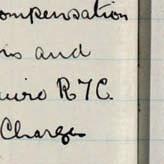 ompensation
is and
uiro R7C.
Charges